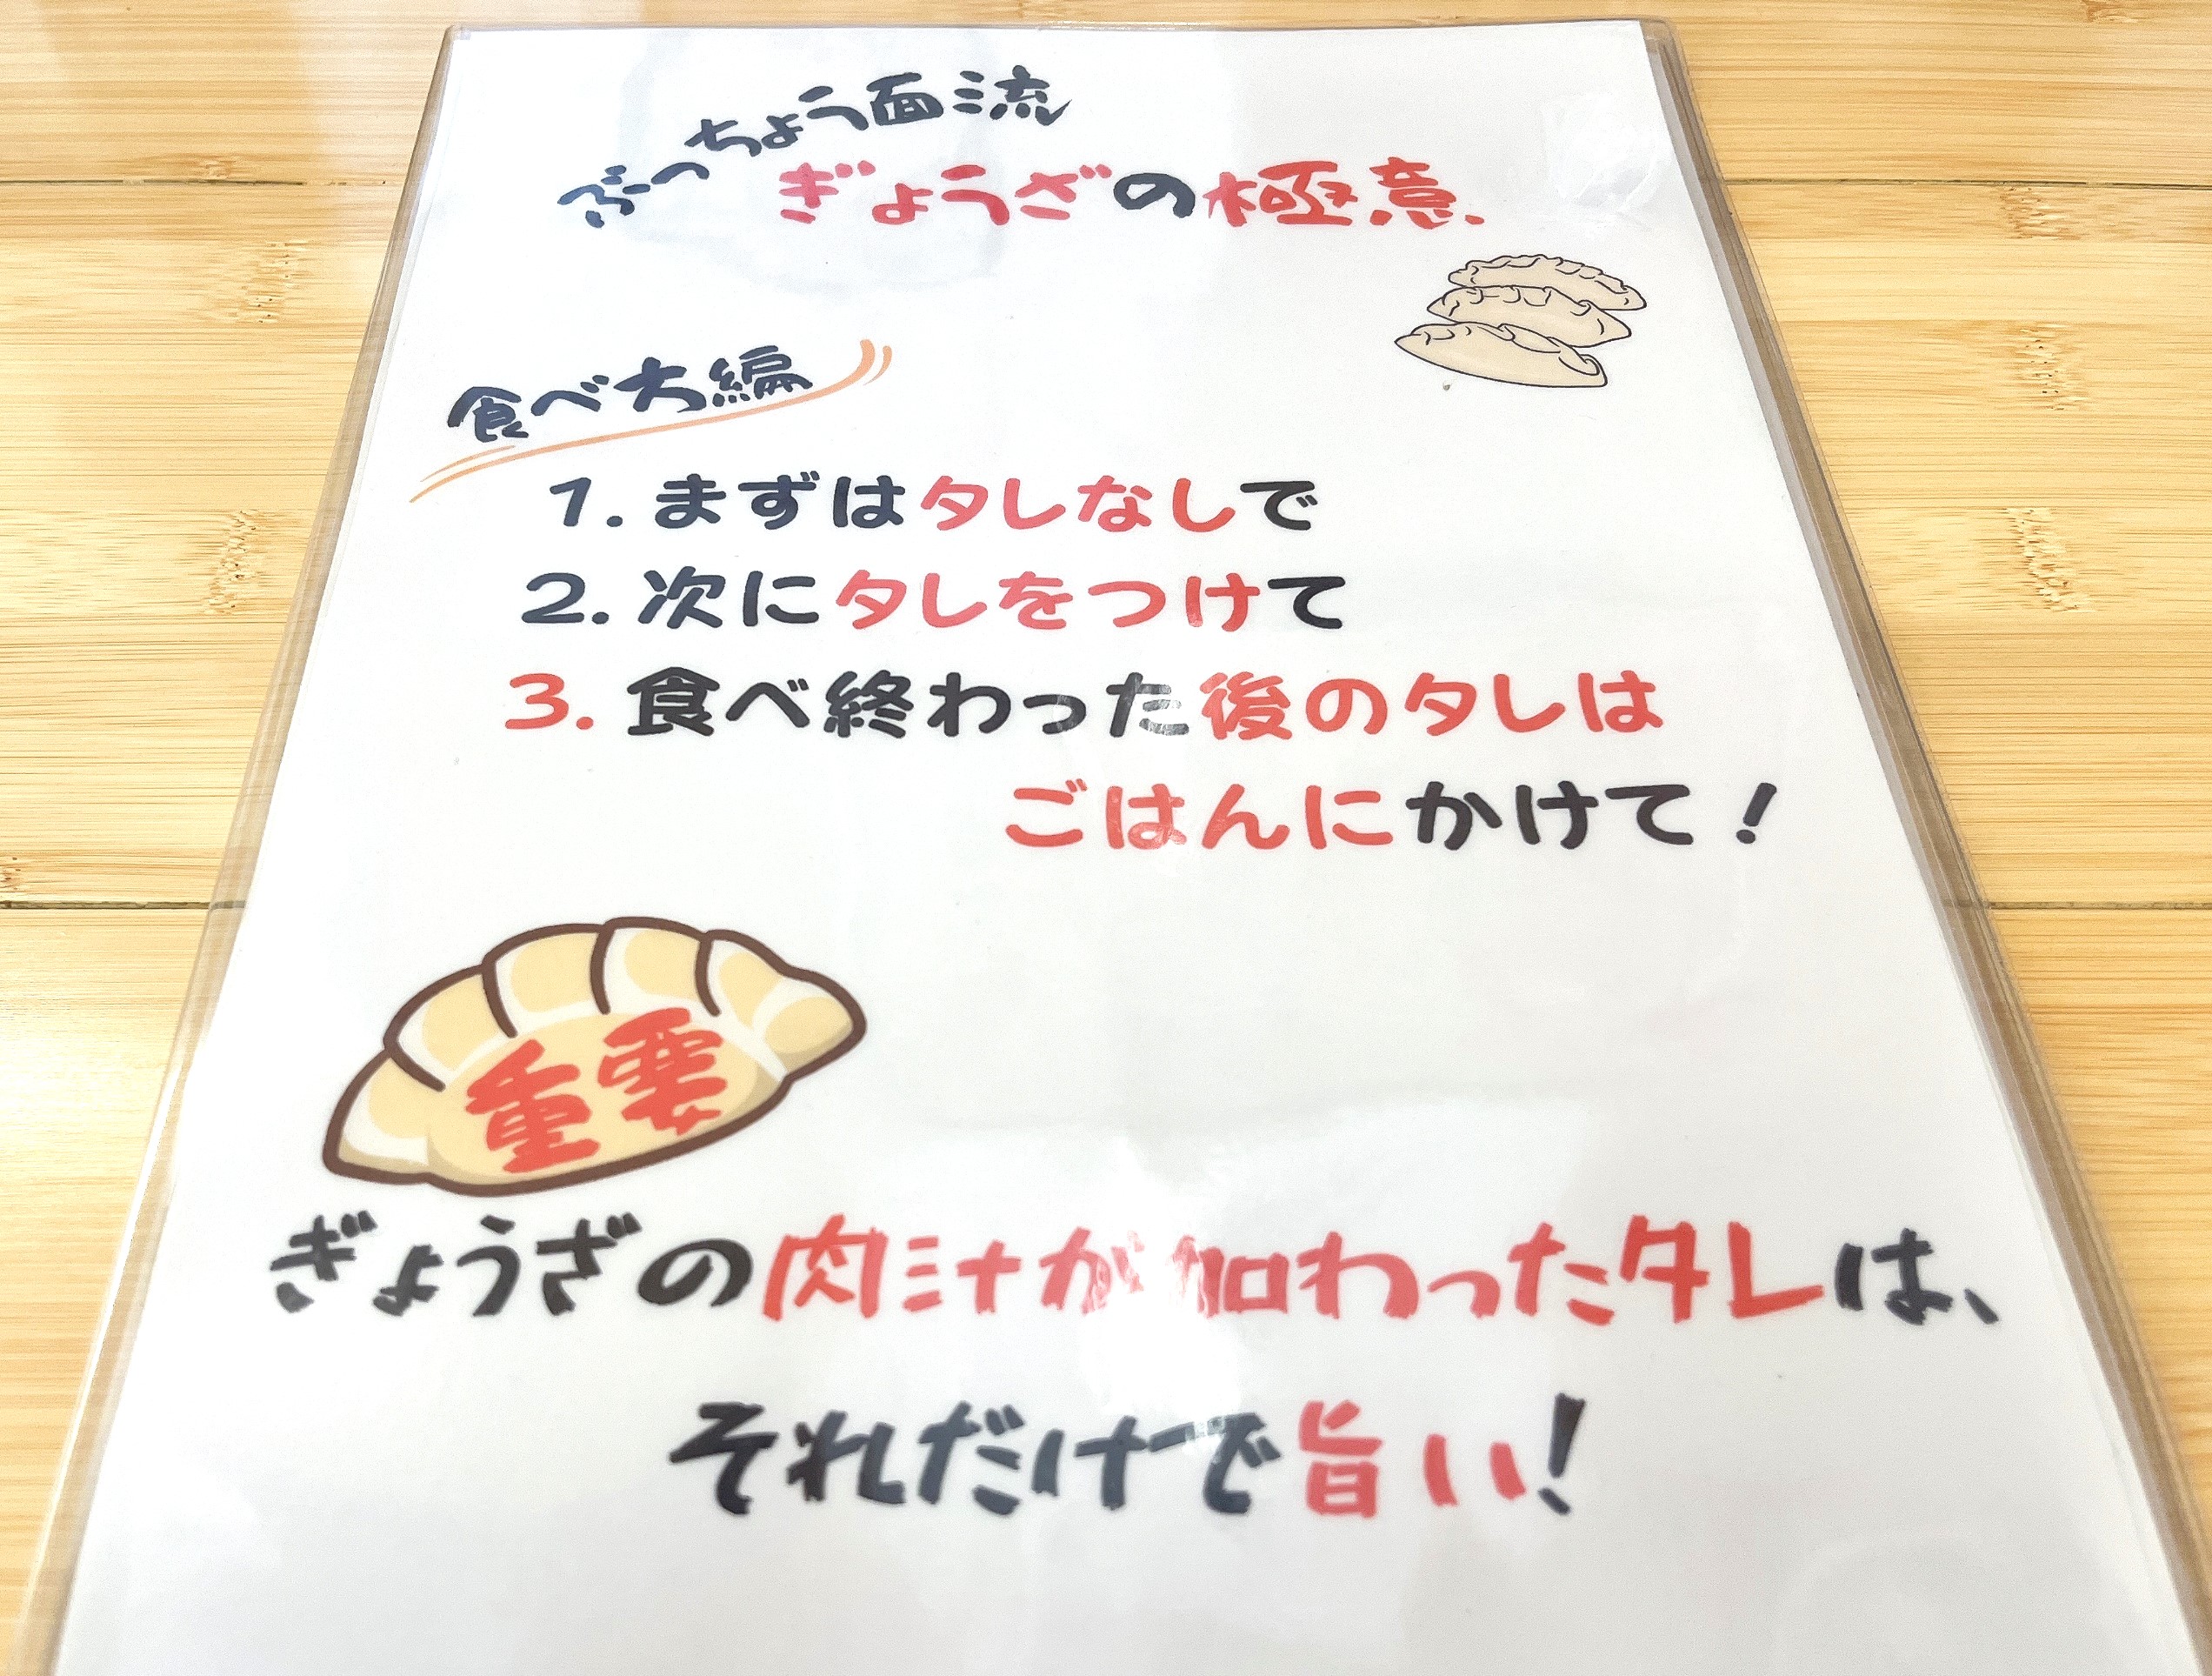 ぶっちょう面流
ぎょうざの極意
食べ方編
1. まずはタレなしで
2. 次にタレをつけて
3. 食べ終わった後のタレは
ごはんにかけて！
重要
ぎょうざの肉汁が加わったタレは、
それだけで旨い!